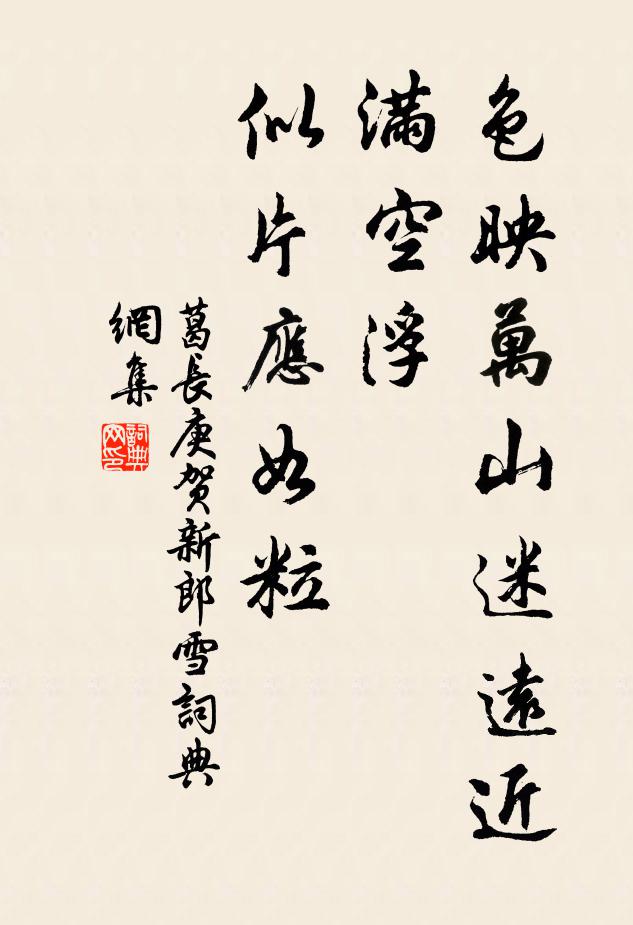 色映萬山迷遠近
滿空浮
似片應如粒
葛長庚賀新郎雪詞典
網集
詞典
网印